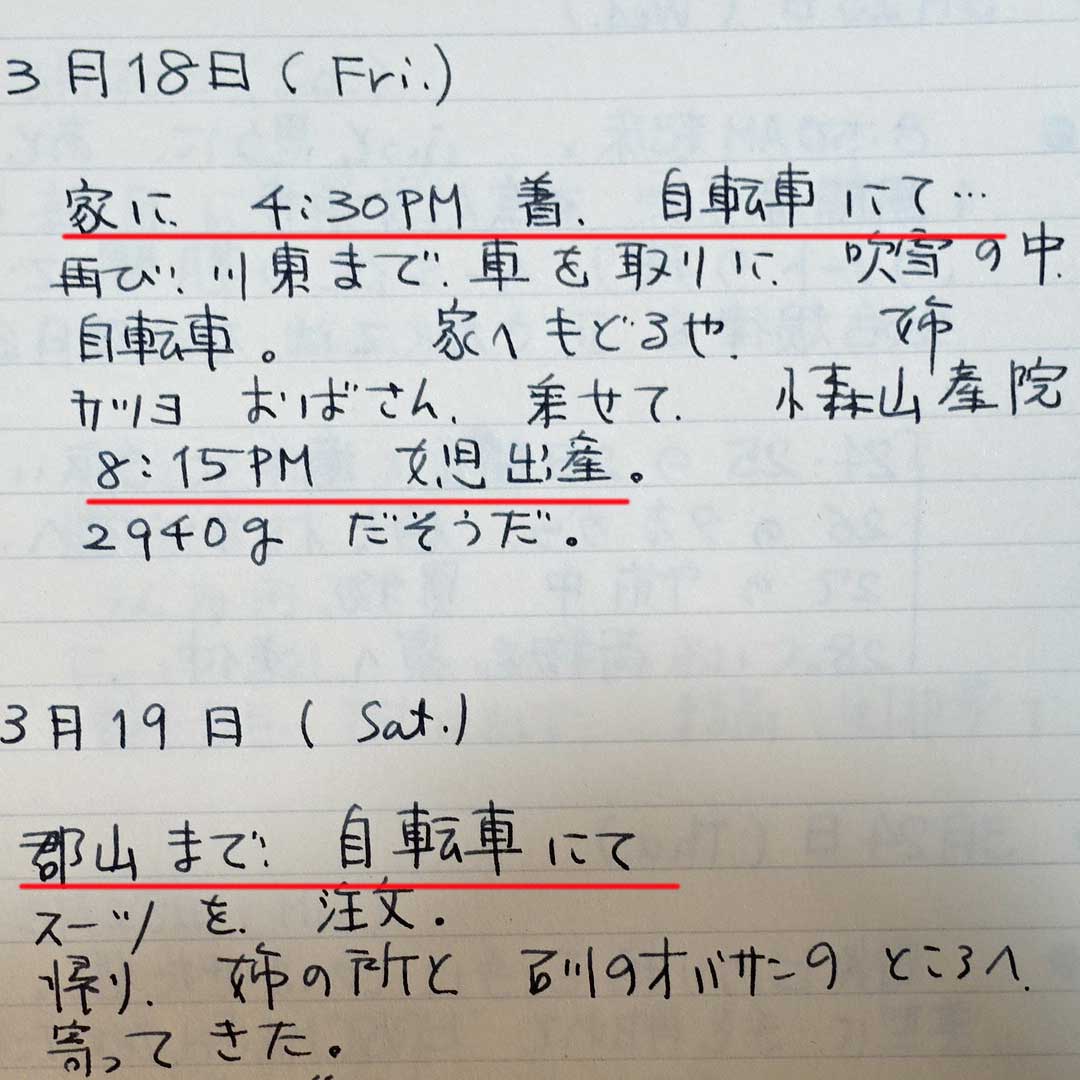 3月18日(Fri.)
家に 4:30PM 着. 自転車 にて…
再び. 川東まで. 車を取りに. 吹雪の中.
自転車。 家へもどるや. 姉
カツヨ おばさん. 乗せて. 小森山産院
8:15PM 女児出産。
2940g だそうだ。
3月19日 (Sat.)
郡山まで. 自転車にて
スーツを. 注文.
帰り. 姉の所と 石川のオバサンの ところへ.
寄ってきた。